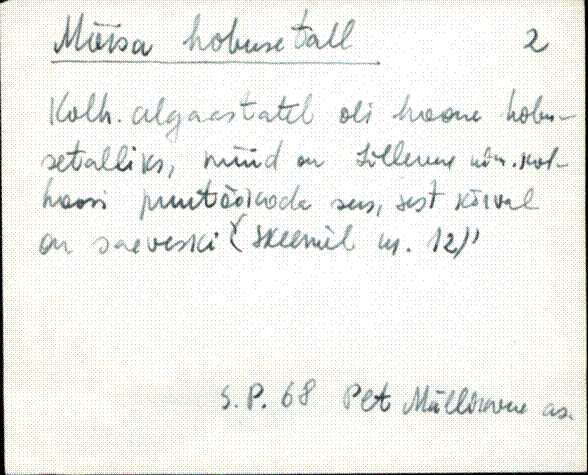 Mõisa hobusetall 2
Kolh. algaastatel oli hoone hobu-
setalliks, nüüd on nim. kol-
hoosi puutöökoda sees, sest kõrval
on saeveski (skeemil nr. 12)"
S.P. 68 as.